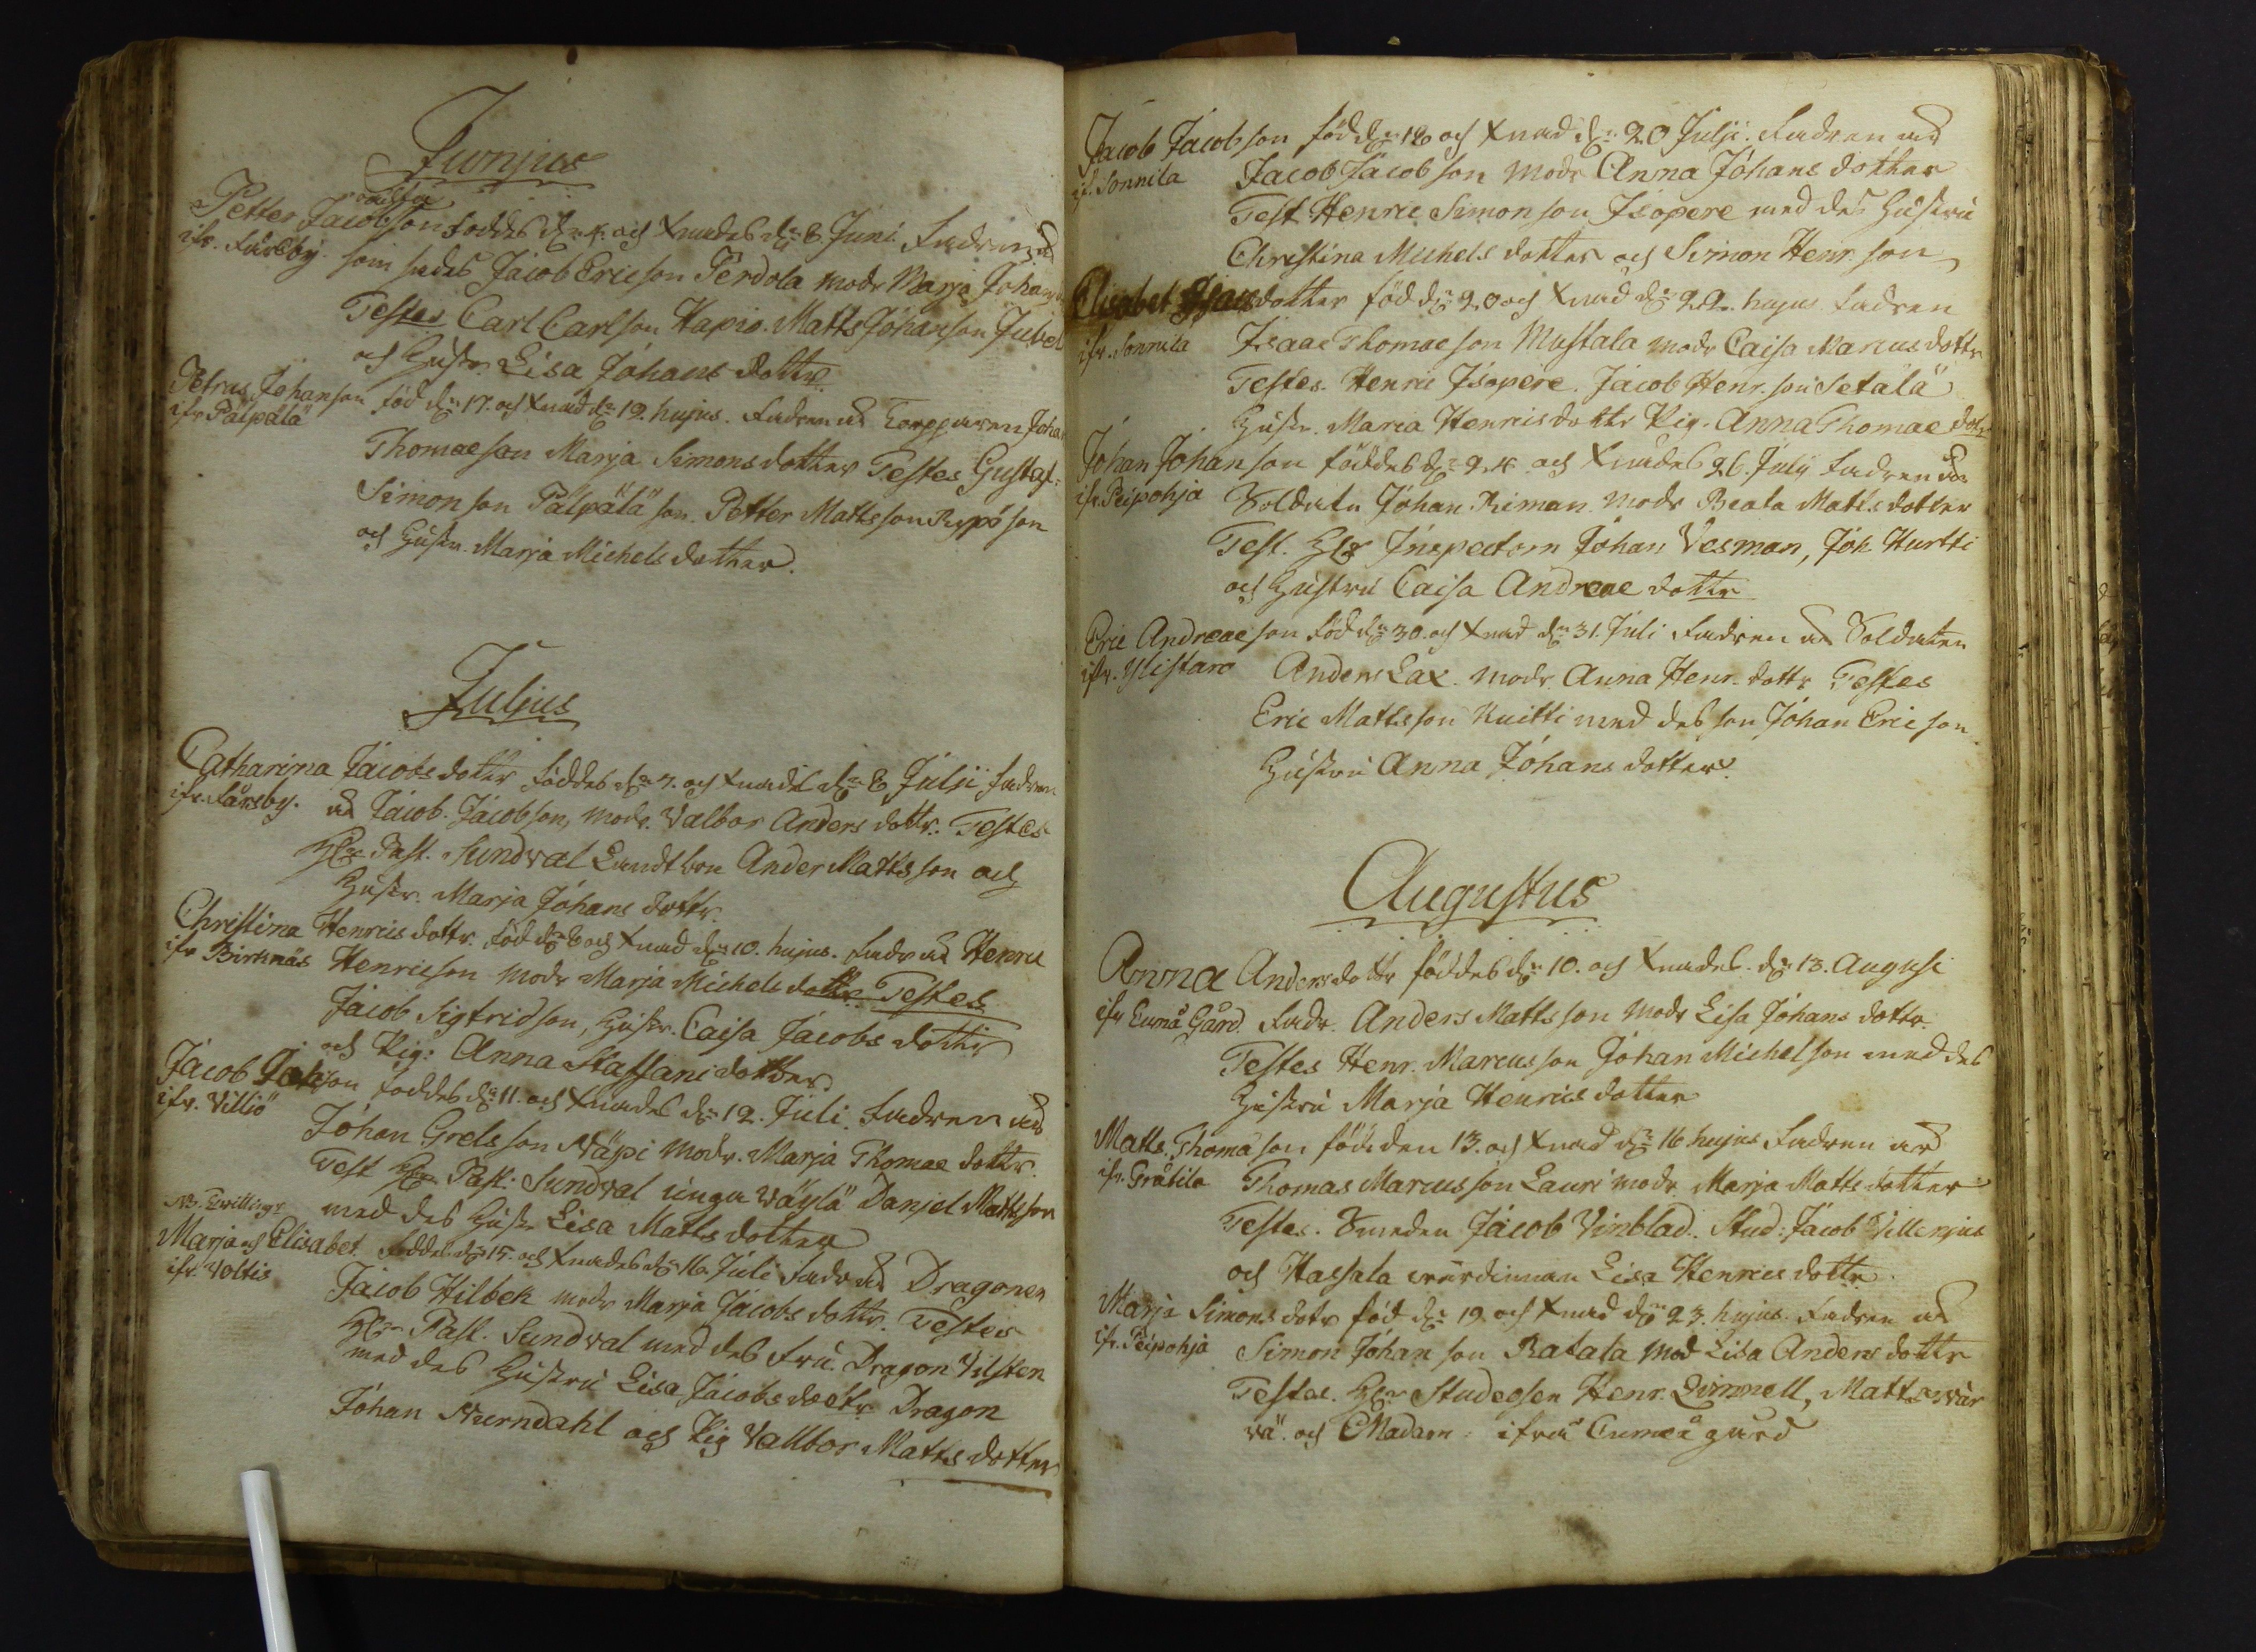 Junjus
oächta
Petter Jacobson föddes d: 4. och Xnades d: 8. Juni. Fadren är
ifr. Fårsby. som sades Jacob Ericson Perdola modr Marja Johans
Testes Carl Carlson Hapio. Matts Johanson Jubel
och Hustr. Lisa Johans dotter.
Petrus Johanson föd d: 17. och Xnad d: 19. hujus. Fadren är Torpparen Johan
ifr Pälpälä
Thomaeson Marja Simonsdotter Testes Gustaf
Simonson Pälpälä son. Petter Mattsson Rypö son
och Hustr. Marja Michelsdotter.
Juljus
Catharina Jacobsdotter föddes d: 7. och Xnades d: 8 Julii fadren
ifr. Fårsby. är Jacob Jacobson, modr. Valbor Anders dottr. Testes
Hr Past. Sundval Landtbon Ander Mattsson och
Hustr. Marja Johans dottr.
Christina Henricsdottr. föd d: 8 och Xnad d: 10. hujus. Fadr är Henric
ifr Birknäs Henricson modr Marja Michelsdottr Testes
Jacob Sigfridson, Hustr. Caisa Jacobs dotter
och Pig: Anna Staffansdotter.
Jacob Johson föddes d: 11. och Xnades d: 12. Juli. Fadren är
ifr. Villiö
Johan Grelsson Näpi modr. Marja Thomae dottr.
Test Hr Past: Sundval unga Väylä Danjel Mattsson
med des Hustr Lisa Matts dotter
NB. Tvillingr
Marja och Elisabet. föddes d: 15. och Xnades d: 16. Juli Fadr är Dragonen
ifr. Voltis
Jacob Hilbek modr Marja Jacobs dottr. Testes
Hr Past. Sundval med des fru. Dragon Vilsten
med des Hustru Lisa Jacobsdottr Dragon
Johan Nurndahl och Pig Vallbor Matts dotter
Jacob Jacobson föd d: 18 och Xnad d: 20 Julji. Fadren är
if. Sonnila Jacob Jacobson modr Anna Johans dotter
Test Henric Simonson Isopere med des Hustru
Christina Michels dotter och Simon Henr. son
Elisabet Isaacsdotter föd d: 20 och Xnad d: 22. hujus fadren
ifr. Sonnila Isaac Thomaeson Mustala modr Caisa Marcus dottr
Testes. Henric Isopere. Jacob Henr. son Setälä
Hustr. Maria Henricsdottr Pig. Anna Thomae dotr
Johan Johanson föddes d: 24. och Xnades 26. July fadren är
ifr. Peipohja Soldatn Johan Riman. modr Beata Matts dotter
Test. Hr Inspectorn Johan Vesman, Joh Hurtti
och Hustru Caisa Andreae dottr
Eric Andreaeson föd d: 30. och Xnad d: 31. Juli Fadren är Soldaten
ifr. Ylistaro Anders Lax. modr. Anna Henr. dottr Testes
Eric Mattsson Kuitti med des son Johan Ericson.
Hustru Anna Johansdotter.
Augustus
Anna Andersdottr föddes d: 10. och Xnades. d: 13. Augusi
ifr Eumå Gård. Fadr. Anders Mattsson modr Lisa Johans dottr.
Testes Henr. Marcusson Johan Michelson med des
Hustru Marja Henrics dotter
Matts. Thomason född den 13. och Xnad d: 16 hujus Fadren är
ifr. Gråtila Thomas Marcusson Lauri modr. Marja Matts dotter
Testes. Smeden Jacob Vinblad. Stud: Jacob Villenjus
och Hassala värdinnan Lisa Henrics dottr.
Marja Simonsdotr föd d: 19. och Xnad d: 23. hujus. Fadren är
ifr. Peipohja Simon Johanson Ratala mod Lisa Anders dottr
Testes. Hr Studeosen Henr. Qvinnell, Matts vär
vä. och Madam ifrå Cumåå gård